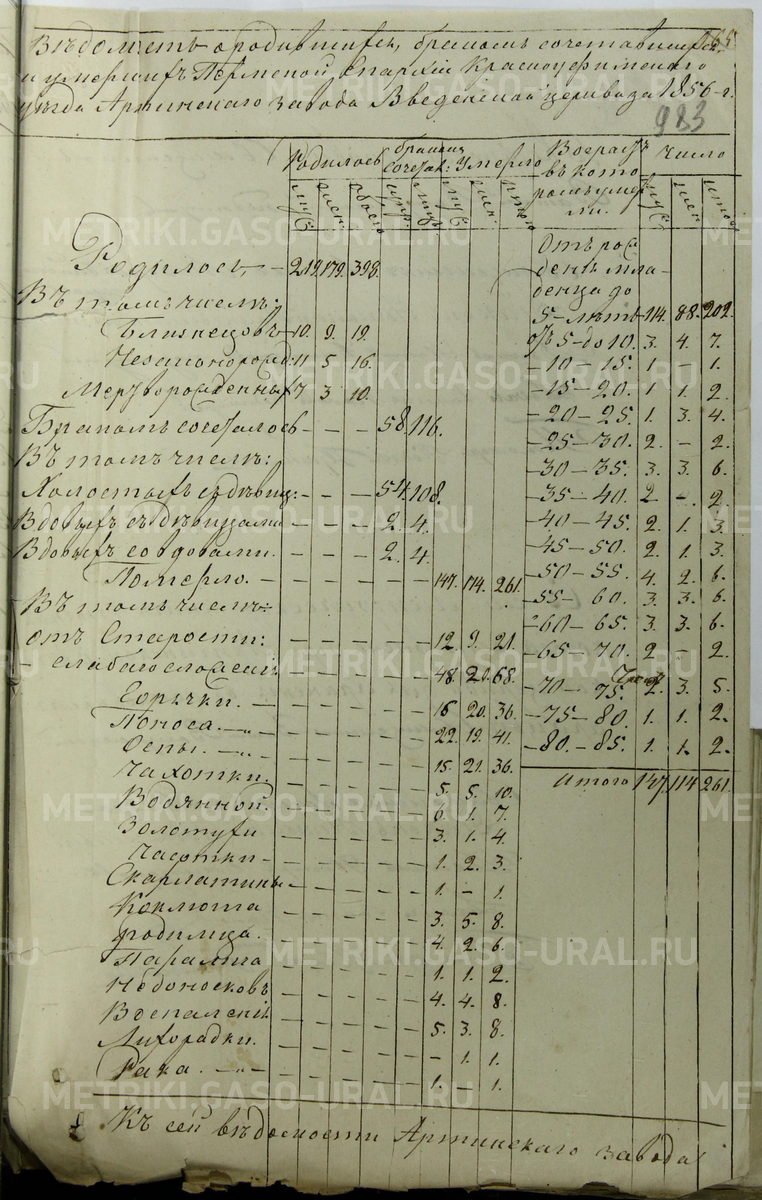 Вѣдомость о родившихся, бракомъ сочетавшихся,
и умершихъ Пермской Епархiи Красноуфимскаго
уѣзда Артинскаго завода Введенской церкви за 1856 г.
983
Родилось Бракомъ сочетал: Умерло Возрастъ въ которомъ умерли. Число
муж. жен. обоего муж. жен. итого муж. жен. итого
Родилось — 219. 179. 398.
Въ томъ числѣ:
Близнецовъ — 10. 9. 19.
Незаконорожд: 11. 5. 16.
Мертворожденныхъ 7 3 10.
Бракомъ сочеталось — — — 58. 116.
Въ томъ числѣ:
Холостыхъ съ дѣвиц: — — — 54. 108.
Вдовыхъ съ дѣвицами — — — 2. 4.
Вдовыхъ со вдовами. — — — 2. 4.
Померло. — — — — — — 147. 114. 261.
Въ томъ числѣ:
отъ Старости: — — — — — 12. 9. 21.
— слабаго сложенiя — — — — — 48. 20. 68.
Горячки. — — — — — — 16 20. 36.
Поноса. — „ — — — — — — 22. 19. 41.
Оспы. — „ — — — — — — 15. 21. 36.
Чахотки. — — — — — 5. 5. 10.
Водянной. — — — — — 6. 1. 7.
Золотухи — — — — — 3. 1. 4.
Чесотки — — — — — — 1. 2. 3.
Скарлатины — — — — — — 1. — 1.
Коклюша — — — — — 3. 5. 8.
Родимца. — — — — — 4. 2. 6.
Паралича — — — — — 1. 1. 2.
Недоносковъ — — — — — 4. 4. 8.
Воспаленiя — — — — — 5. 3. 8.
Лихорадки. — — — — — — 1. 1.
Рака. — „ — — — — — — 1. 1.
Отъ рож
денья мла
денца до
5-лѣтъ 114. 88. 202.
отъ 5 — до 10. 3. 4. 7.
— 10 — 15. 1 — 1.
— 15 — 20. 1 1. 2.
— 20 — 25. 1. 3. 4.
— 25 — 30. 2. — 2.
— 30 — 35. 3. 3. 6.
— 35 — 40. 2 — 2.
— 40 — 45. 2. 1. 3.
— 45 — 50. 2. 1. 3.
— 50 — 55. 4. 2. 6.
— 55 — 60. 3. 3. 6.
— 60 — 65. 3. 3. 6.
— 65 — 70. 2 — 2.
— 70 — 75. 2. 3. 5.
— 75 — 80. 1. 1. 2.
— 80. — 85. 1. 1. 2.
Итого 147 114 261.
Къ сей вѣдомости Артинскаго завода
METRIKI.GASO-URAL.RU